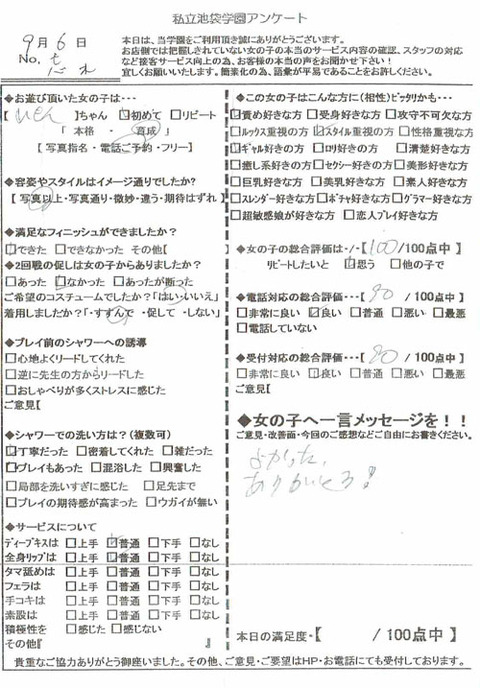 私立池袋学園アンケート
9月6日
No,
本日は、当学園をご利用頂き誠にありがとうございます。
お店側では把握しきれていない女の子の本当のサービス内容の確認、スタッフの対応
など接客サービス向上の為、お客様の本当の声をお聞かせ下さい!
宜しくお願いいたします。簡素化の為、語彙が平易であることをお許しください。
◆お遊び頂いた女の子は・・・
【 ]ちゃん □初めて □リピート
「 本格 ・ 育成 」
【 写真指名・電話ご予約・フリー】
◆容姿やスタイルはイメージ通りでしたか?
【 写真以上・写真通り・微妙・違う・期待はずれ 】
◆満足なフィニッシュができましたか?
□できた □できなかった その他[ ]
◆2回戦の促しは女の子からありましたか?
□あった □なかった □あったが断った
ご希望のコスチュームでしたか?「はい・いいえ」
着用しましたか?「すすんで ・促して ・しない」
◆プレイ前のシャワーへの誘導
□心地よくリードしてくれた
□逆に先生の方からリードした
□おしゃべりが多くストレスに感じた
ご意見【
◆シャワーでの洗い方は?(複数可)
□丁寧だった □密着してくれた □雑だった
□プレイもあった □混浴した □興奮した
□局部を洗いすぎに感じた □足先まで
□プレイの期待感が高まった □ウガイが無い
◆サービスについて
ディープキスは □上手 □普通 □下手 □なし
全身リップは □上手 □普通 □下手 □なし
タマ舐めは □上手 □普通 □下手 □なし
フェラは □上手 □普通 □下手 □なし
手コキは □上手 □普通 □下手 □なし
素股は □上手 □普通 □下手 □なし
積極性を □感じた □感じない
その他『 』
◆この女の子はこんな方に(相性)ピッタリかも・・・
□責め好きな方 □受身好きな方 □攻守不可欠な方
□ルックス重視の方 □スタイル重視の方 □性格重視な方
□ギャル好きの方 □ロリ好きの方 □清楚好きな方
□癒し系好きの方 □セクシー好きの方 □美形好きな方
□巨乳好きな方 □美乳好きな方 □素人好きな方
□スレンダー好きな方 □ポチャ好きな方 □グラマー好きな方
□超敏感娘が好きな方 □恋人プレイ好きな方
◆女の子の総合評価は・・・【 100 /100点中 】
リピートしたいと □思う □他の子で
◆電話対応の総合評価・・・【 90 / 100点中 】
□非常に良い □良い □普通 □悪い □最悪
□電話していない
◆受付対応の総合評価・・・【 90 / 100点中 】
□非常に良い □良い □普通 □悪い □最悪
ご意見【
◆女の子へ一言メッセージを!!
ご意見・改善面・今回のご感想などご自由にお書きください。
よかった、
ありがとう!
本日の満足度・【 / 100点中 】
貴重なご協力ありがとう御座いました。その他、ご意見・ご要望はHP・お電話にても受付しております。